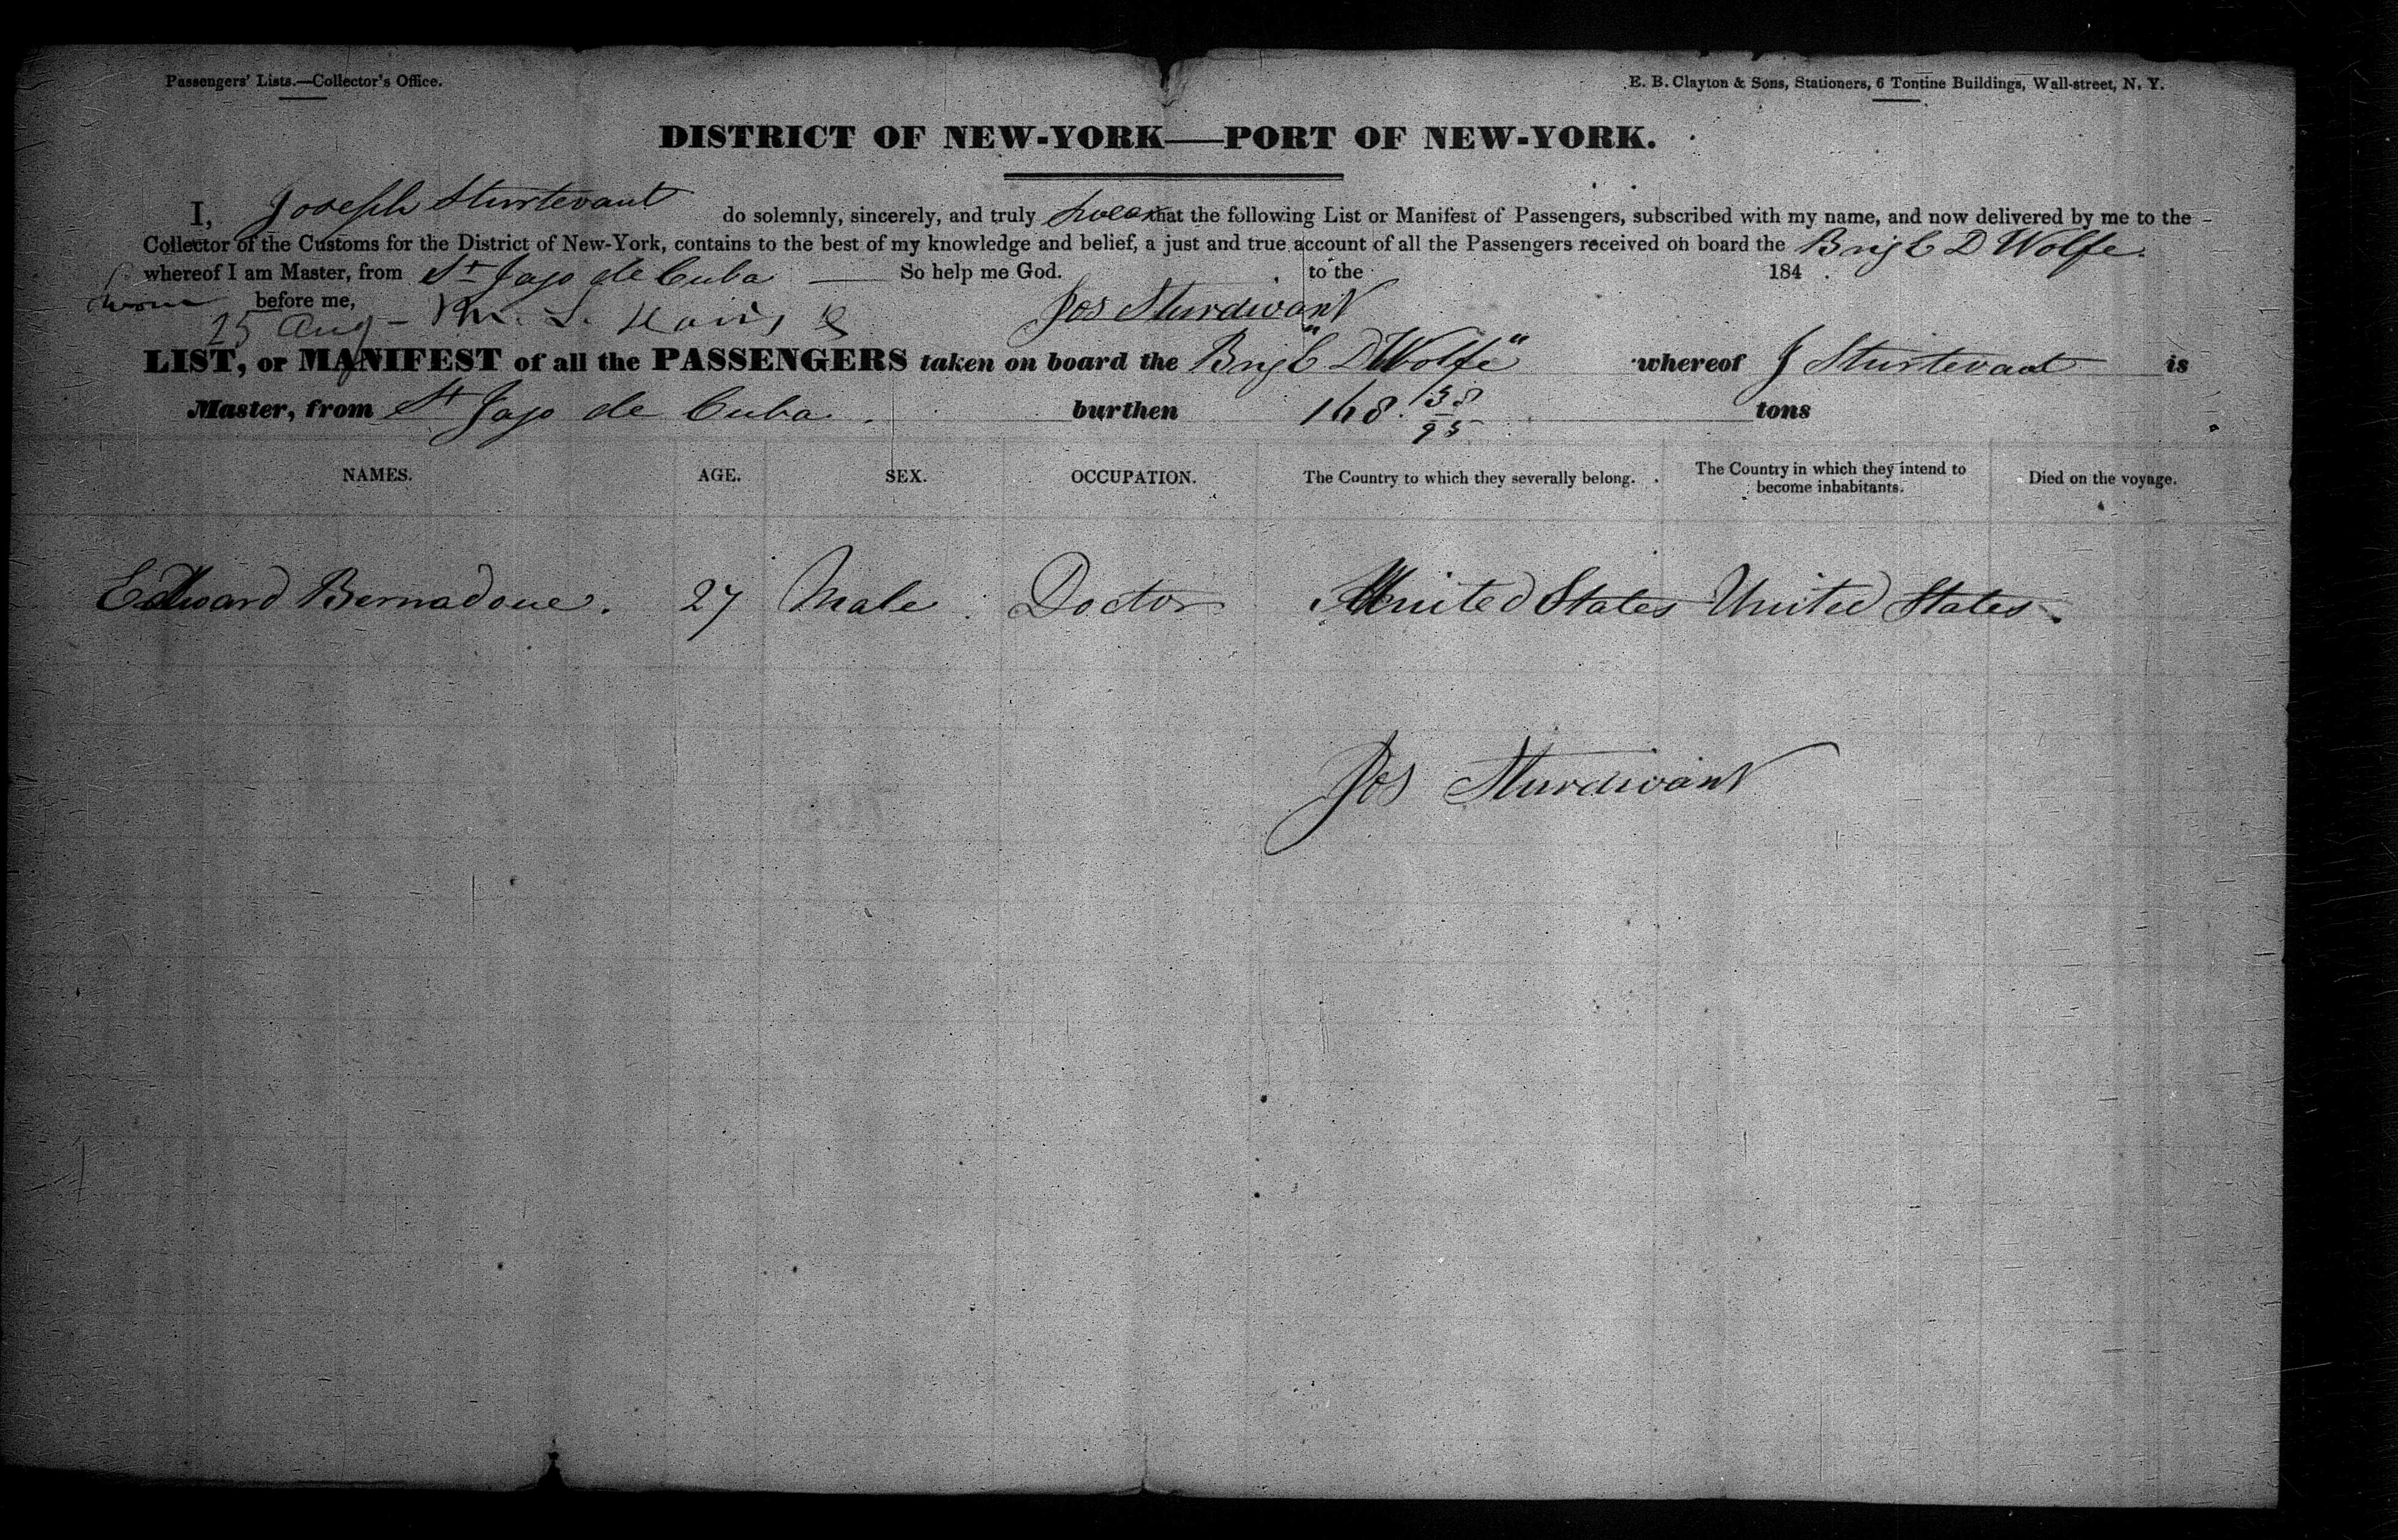 Passengers' Lists.—Collector's Office.
E. B. Clayton & Sons, Stationers, 6 Tontine Buildings, Wall-street, N. Y.
DISTRICT OF NEW-YORK—PORT OF NEW-YORK.
I, Joseph Sturtevant do solemnly, sincerely, and truly swear that the following List or Manifest of Passengers, subscribed with my name, and now delivered by me to the
Collector of the Customs for the District of New-York, contains to the best of my knowledge and belief, a just and true account of all the Passengers received on board the Brig C D Wolfe.
whereof I am Master, from St Jago de Cuba — So help me God. to the 184
Sworn before me, Jos Sturdivant
25 Aug
LIST, or MANIFEST of all the PASSENGERS taken on board the Brig "C D Wolfe" whereof J Sturtevant is
Master, from St Jago de Cuba. burthen 168. 38/95 tons
NAMES. AGE. SEX. OCCUPATION. The Country to which they severally belong. The Country in which they intend to become inhabitants. Died on the voyage.
Edward Bernadoue. 27 Male. Doctor United States United States.
Jos Sturdivant